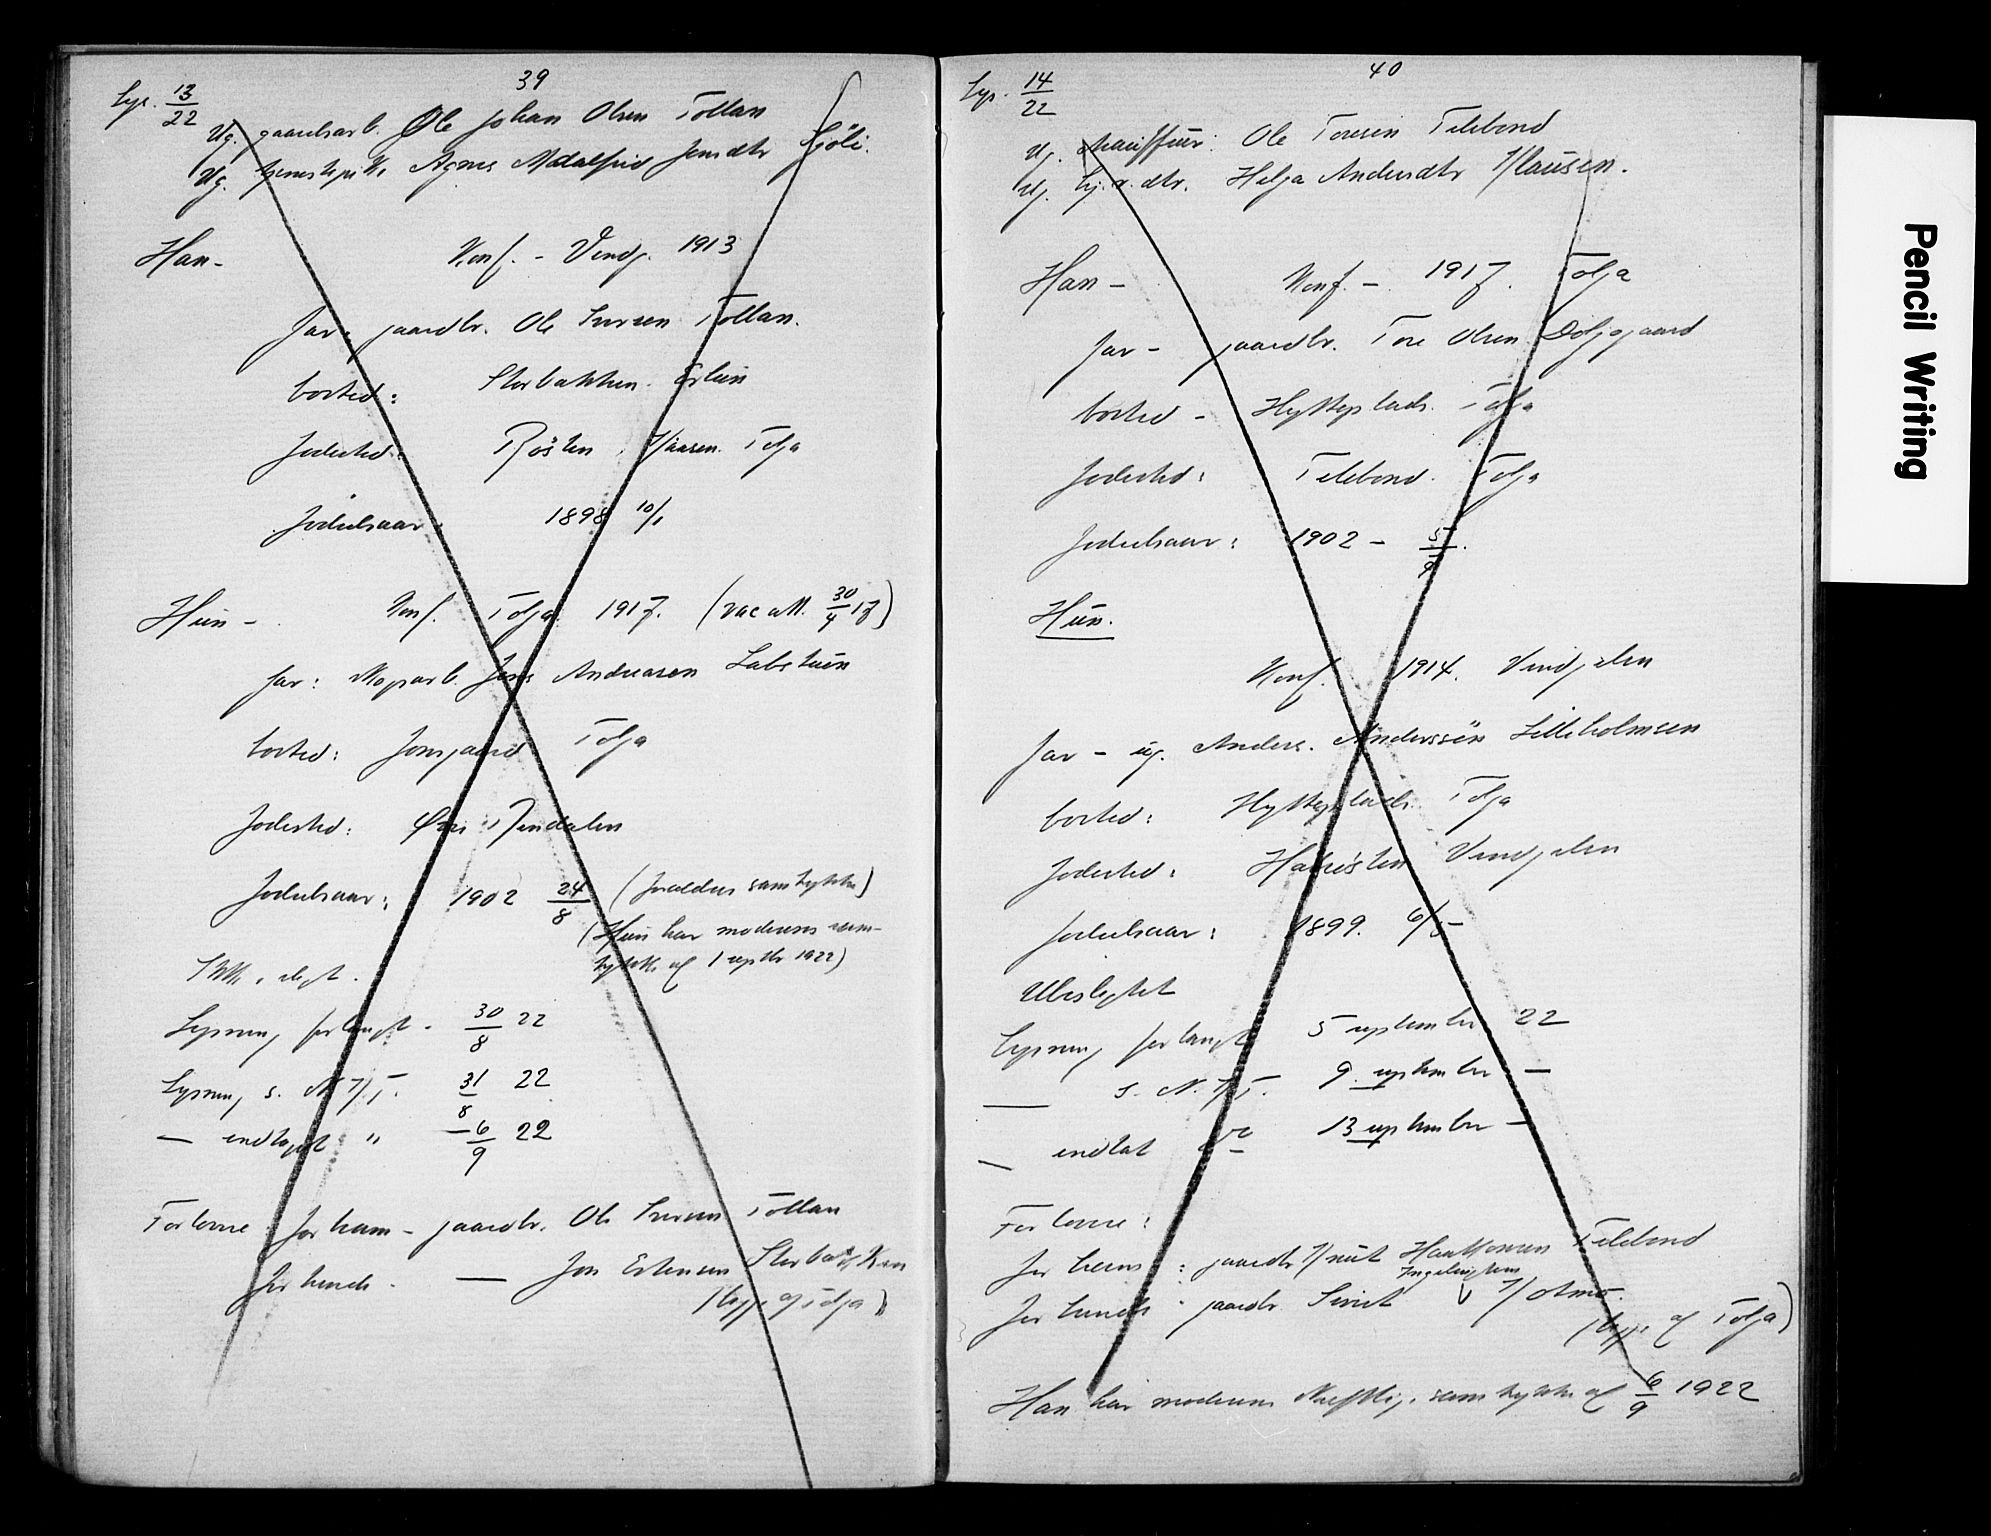 39
Lys. 13/22
Ug. gaardsarb. Ole Johan Olsen Tollan
Ug. Agnes Jensdtr Sjöli.
Han - Konf. - Vindj. 1913
far - gaardbr. Ole Iversen Tollan.
bosted: Storbakken Erlien
fødested: Røsten Tolga
fødselsaar: 1898 10/1
Hun - Konf. Tolga 1917. (vac att. 30/4 17)
far: Jens Andreasen
bosted: Jonsgaard Tolga
fødested: Øvre Rendalen
fødselsaar: 1902 24/8 (forældres samtykke)
(Hun har moderens sam-
tykke af 1 septbr 1922)
Lysning forlangt - 30/8 22
Lysning s. N. T. 31/8 22
— endtaget " 6/9 22
Forlovere for ham - gaardbr. Ole Iversen Tollan
for hende - — Jon Estensen Storbakken
(begge af Tolga)
40
Lys. 14/22
Ug. chauffeur Ole Toresen Telebond
Ug. gj.v.dtr. Helga Andersdtr
Han - Konf. - 1917. Tolga
far - gaardbr. Tore Olsen
bosted - Hytteplads. Tolga
fødested: Telebond. Tolga
fødselsaar: 1902 - 5/9.
Hun.
Konf. 1914. Vindjalen
far - ug. Anders. Anderssøn Lilleholmen
bosted: Hytteplads Tolga
fødested: Vindjalen
fødselsaar: 1899. 6/5
Ubeslegtet
Lysning forlangt 5 september 22
— s. N. T. 9. september —
— endtat do 13 september —
Forlovere:
for ham: gaardbr Knut Haakonsen Telebond
Ingebrigtsen
for hende - gaardbr. Sivert Holmen.
(begge af Tolga)
Han har moderens skriftlig. samtykke af 6/9 1922
Pencil Writing